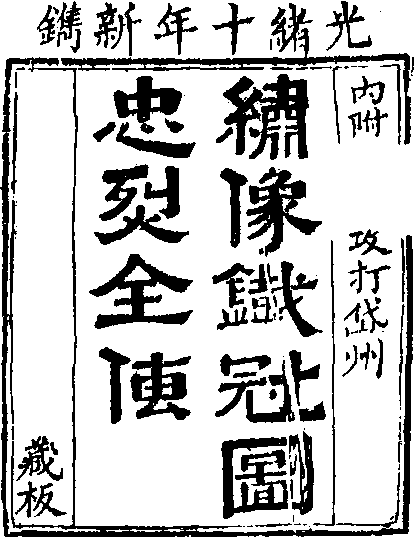 光緒十年新鐫
內附
攻打岱州
繡像鐵冠圖
忠烈全傳
藏板